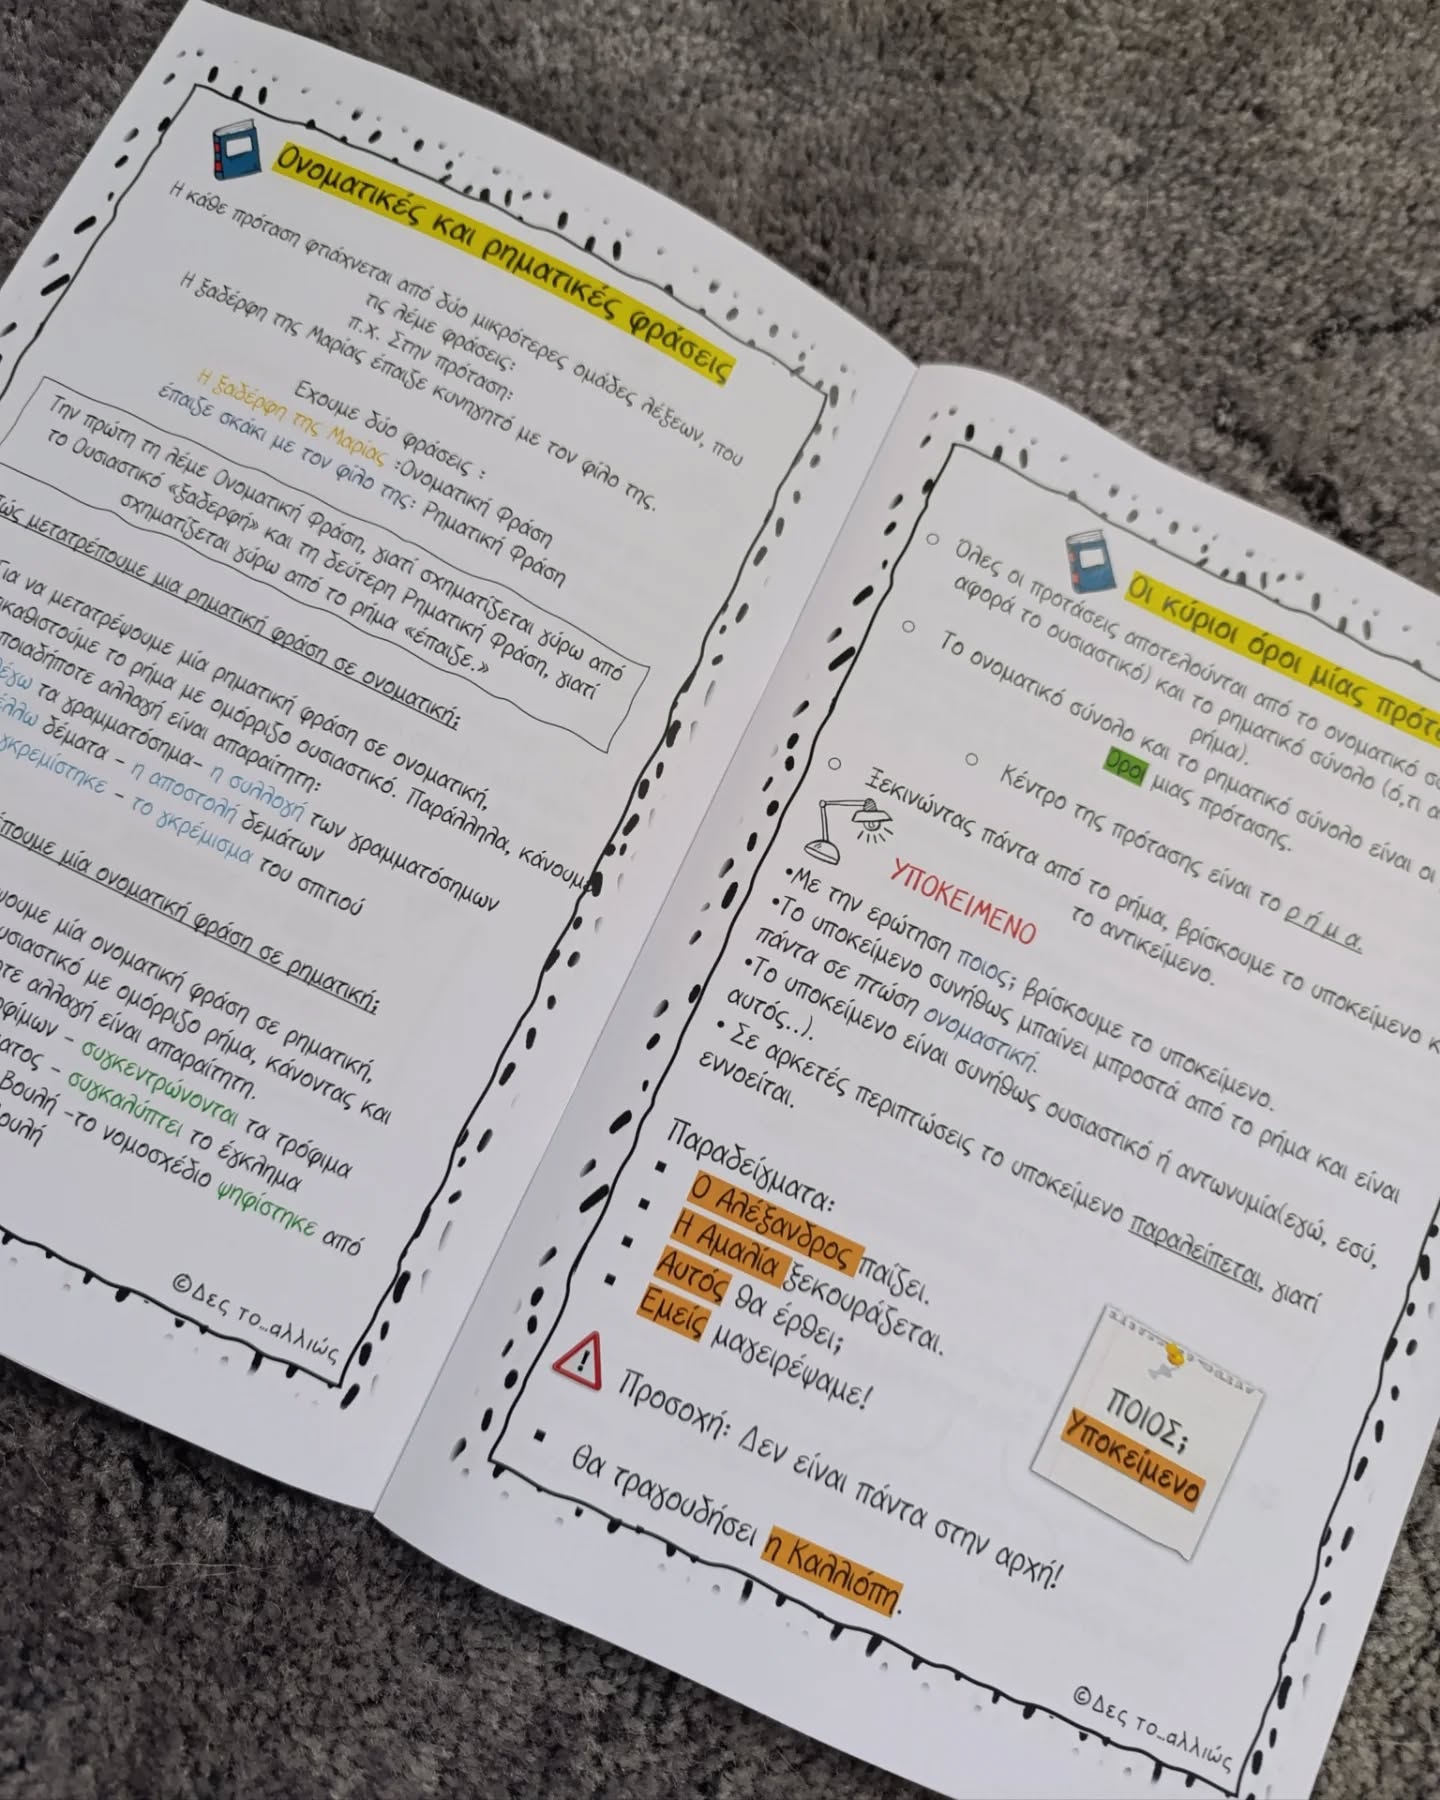 Ονοματικές και ρηματικές φράσεις
Η κάθε πρόταση φτιάχνεται από δύο μικρότερες ομάδες λέξεων, που
τις λέμε φράσεις:
π.χ. Στην πρόταση:
Η ξαδέρφη της Μαρίας έπαιξε κυνηγητό με τον φίλο της.
Έχουμε δύο φράσεις :
Η ξαδέρφη της Μαρίας :Ονοματική Φράση
έπαιξε σκάκι με τον φίλο της: Ρηματική Φράση
Την πρώτη τη λέμε Ονοματική Φράση, γιατί σχηματίζεται γύρω από
το Ουσιαστικό «ξαδερφή» και τη δεύτερη Ρηματική Φράση, γιατί
σχηματίζεται γύρω από το ρήμα «έπαιξε.»
μετατρέπουμε μια ρηματική φράση σε ονοματική;
Για να μετατρέψουμε μία ρηματική φράση σε ονοματική,
το ρήμα με ομόρριζο ουσιαστικό. Παράλληλα, κάνουμε
αλλαγή είναι απαραίτητη:
τα γραμματόσημα- η συλλογή των γραμματόσημων
δέματα - η αποστολή δεμάτων
- το γκρέμισμα του σπιτιού
μία ονοματική φράση σε ρηματική;
μία ονοματική φράση σε ρηματική,
με ομόρριζο ρήμα, κάνοντας και
αλλαγή είναι απαραίτητη.
- συγκεντρώνονται τα τρόφιμα
- συγκαλύπτει το έγκλημα
Βουλή -το νομοσχέδιο ψηφίστηκε από
©Δες το...αλλιώς
Οι κύριοι όροι μίας
Όλες οι προτάσεις αποτελούνται από το ονοματικό
αφορά το ουσιαστικό) και το ρηματικό σύνολο (ό,τι
ρήμα).
Το ονοματικό σύνολο και το ρηματικό σύνολο είναι οι
όροι μιας πρότασης.
Κέντρο της πρότασης είναι το ρ ή μ α.
Ξεκινώντας πάντα από το ρήμα, βρίσκουμε το υποκείμενο
το αντικείμενο.
ΥΠΟΚΕΙΜΕΝΟ
•Με την ερώτηση ποιος; βρίσκουμε το υποκείμενο.
•Το υποκείμενο συνήθως μπαίνει μπροστά από το ρήμα και είναι
πάντα σε πτώση ονομαστική.
•Το υποκείμενο είναι συνήθως ουσιαστικό ή αντωνυμία(εγώ, εσύ,
αυτός..).
• Σε αρκετές περιπτώσεις το υποκείμενο παραλείπεται, γιατί
εννοείται.
Παραδείγματα:
Ο Αλέξανδρος παίζει.
Η Αμαλία ξεκουράζεται.
Αυτός θα έρθει;
Εμείς μαγειρέψαμε!
ΠΟΙΟΣ;
Υποκείμενο
Προσοχή: Δεν είναι πάντα στην αρχή!
Θα τραγουδήσει η Καλλιόπη.
©Δες το...αλλιώς